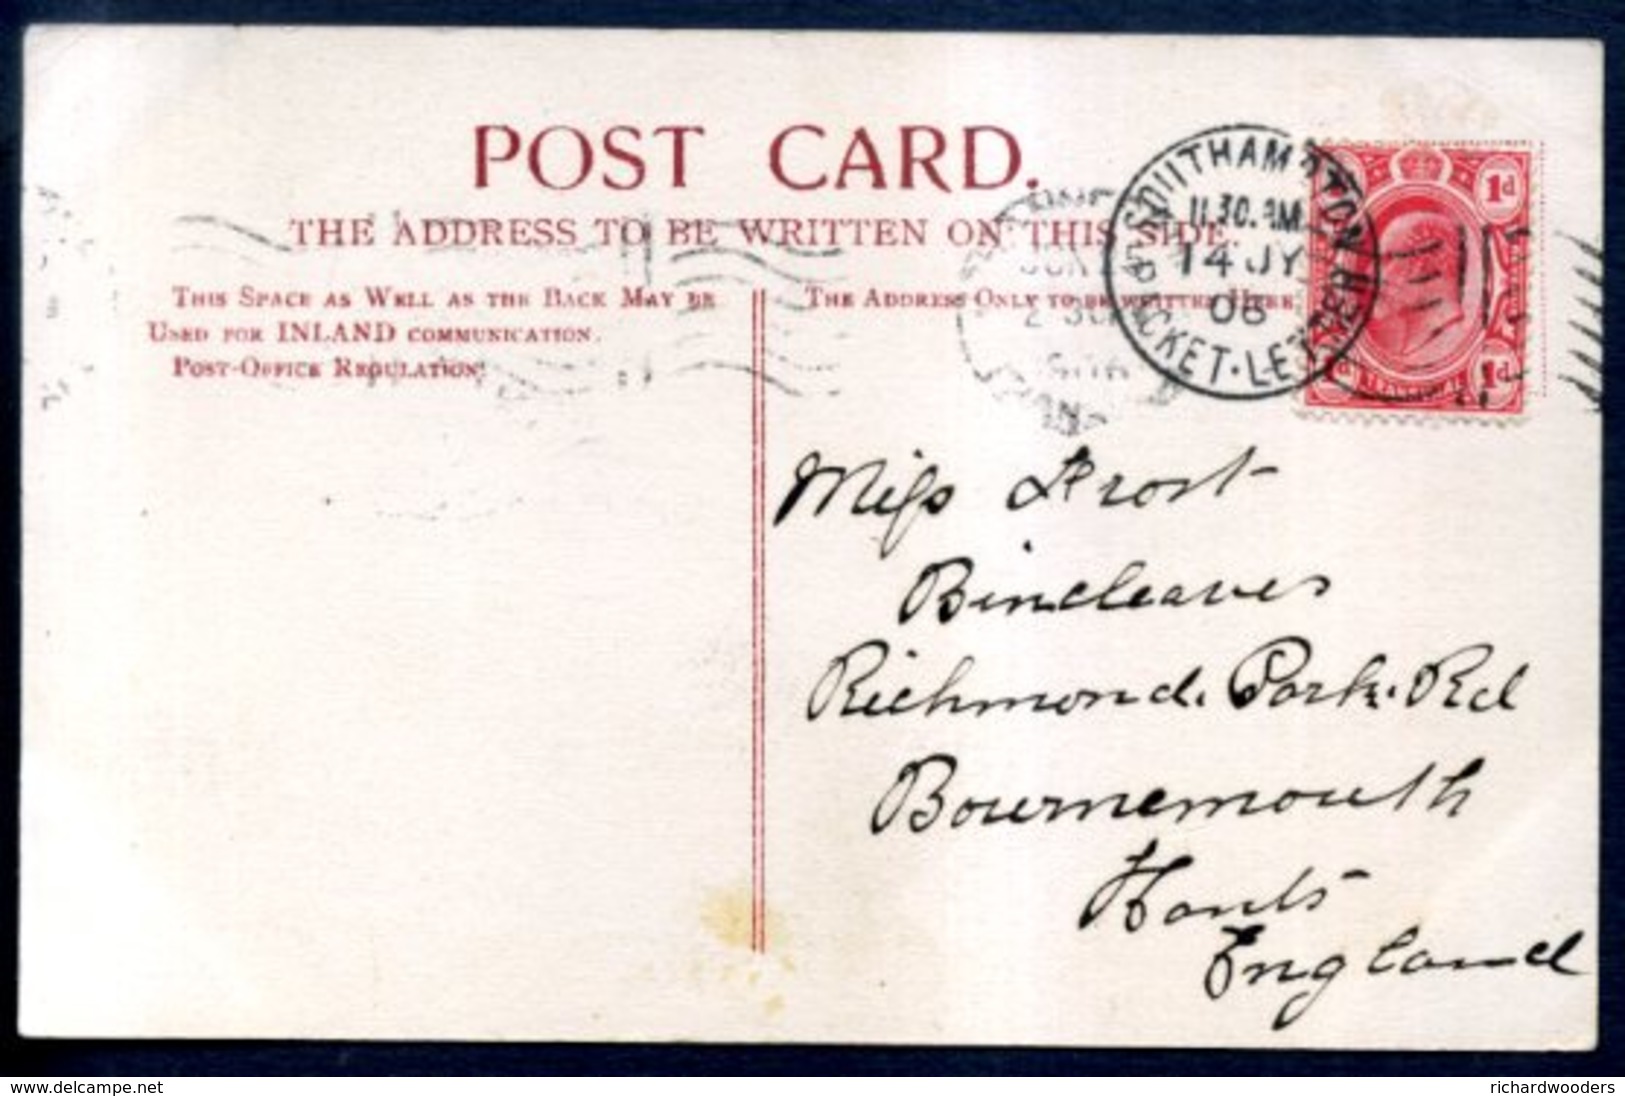 POST CARD.
THE ADDRESS TO BE WRITTEN ON THIS SIDE.
THIS SPACE AS WELL AS THE BACK MAY BE
USED FOR INLAND COMMUNICATION.
POST-OFFICE REGULATION.
THE ADDRESS ONLY TO BE WRITTEN HERE
SOUTHAMPTON
11.30.AM
14 JY
08
PACKET·LETTER
1d
1d
Miss Frost
Bincleaves
Richmond. Park. Rd
Bournemouth
Hants
England
www.delcampe.net
richardwooders